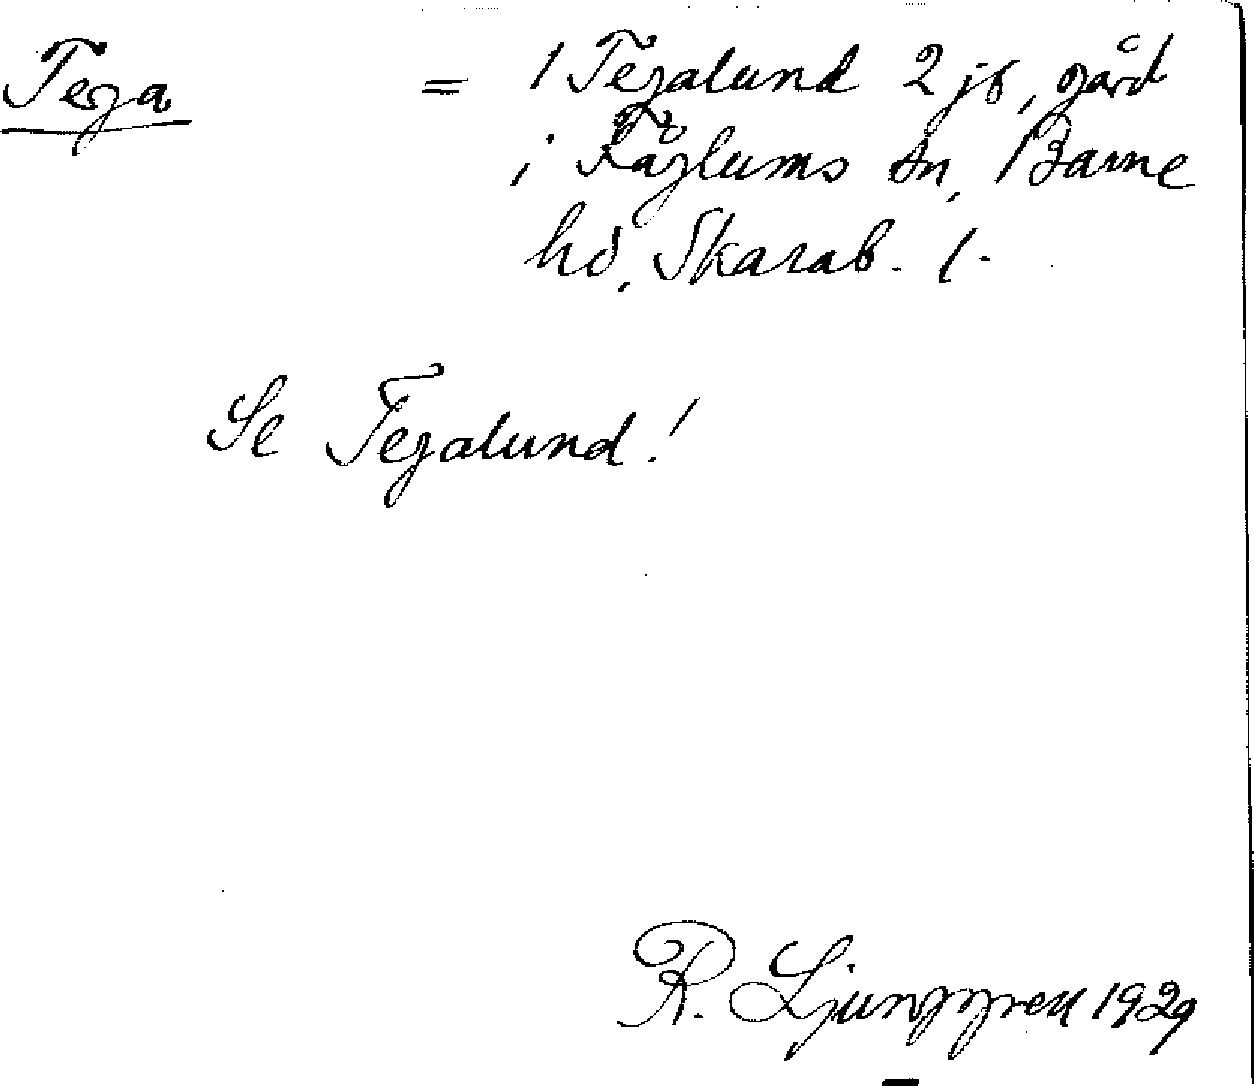 Tega = 1 Tegalund 2 js, gård
i Fåglums sn, Barne
hd, Skarab. l.
Se Tegalund!
R. Ljunggren 1929